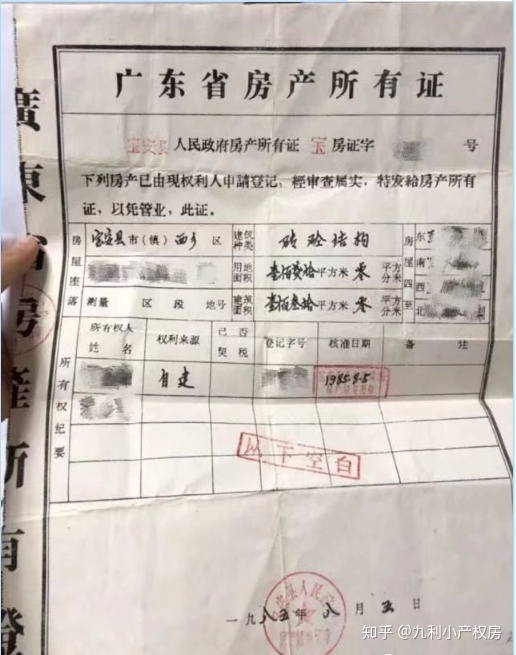 广东省房产所有证
宝安县人民政府房产所有证 宝房证字 号
下列房产已由现权利人申請登记，經审查属实，特发給房产所有
证，以凭管业，此证。
房屋座落 宝安县市（镇）西乡区 建筑种类 砖砼结构 房屋四至 东
用地面积 平方米零平方分米 南
测量 区 段 地号 建筑面积 壹佰叁拾平方米零平方分米 西
北
所有权纪要
所有权人姓名 权利来源 已否契税 登记字号 核准日期 备注
自建 1985.8.5
以下空白
一九八五年八月五日
廣東省房產所有證
知乎 @九利小产权房